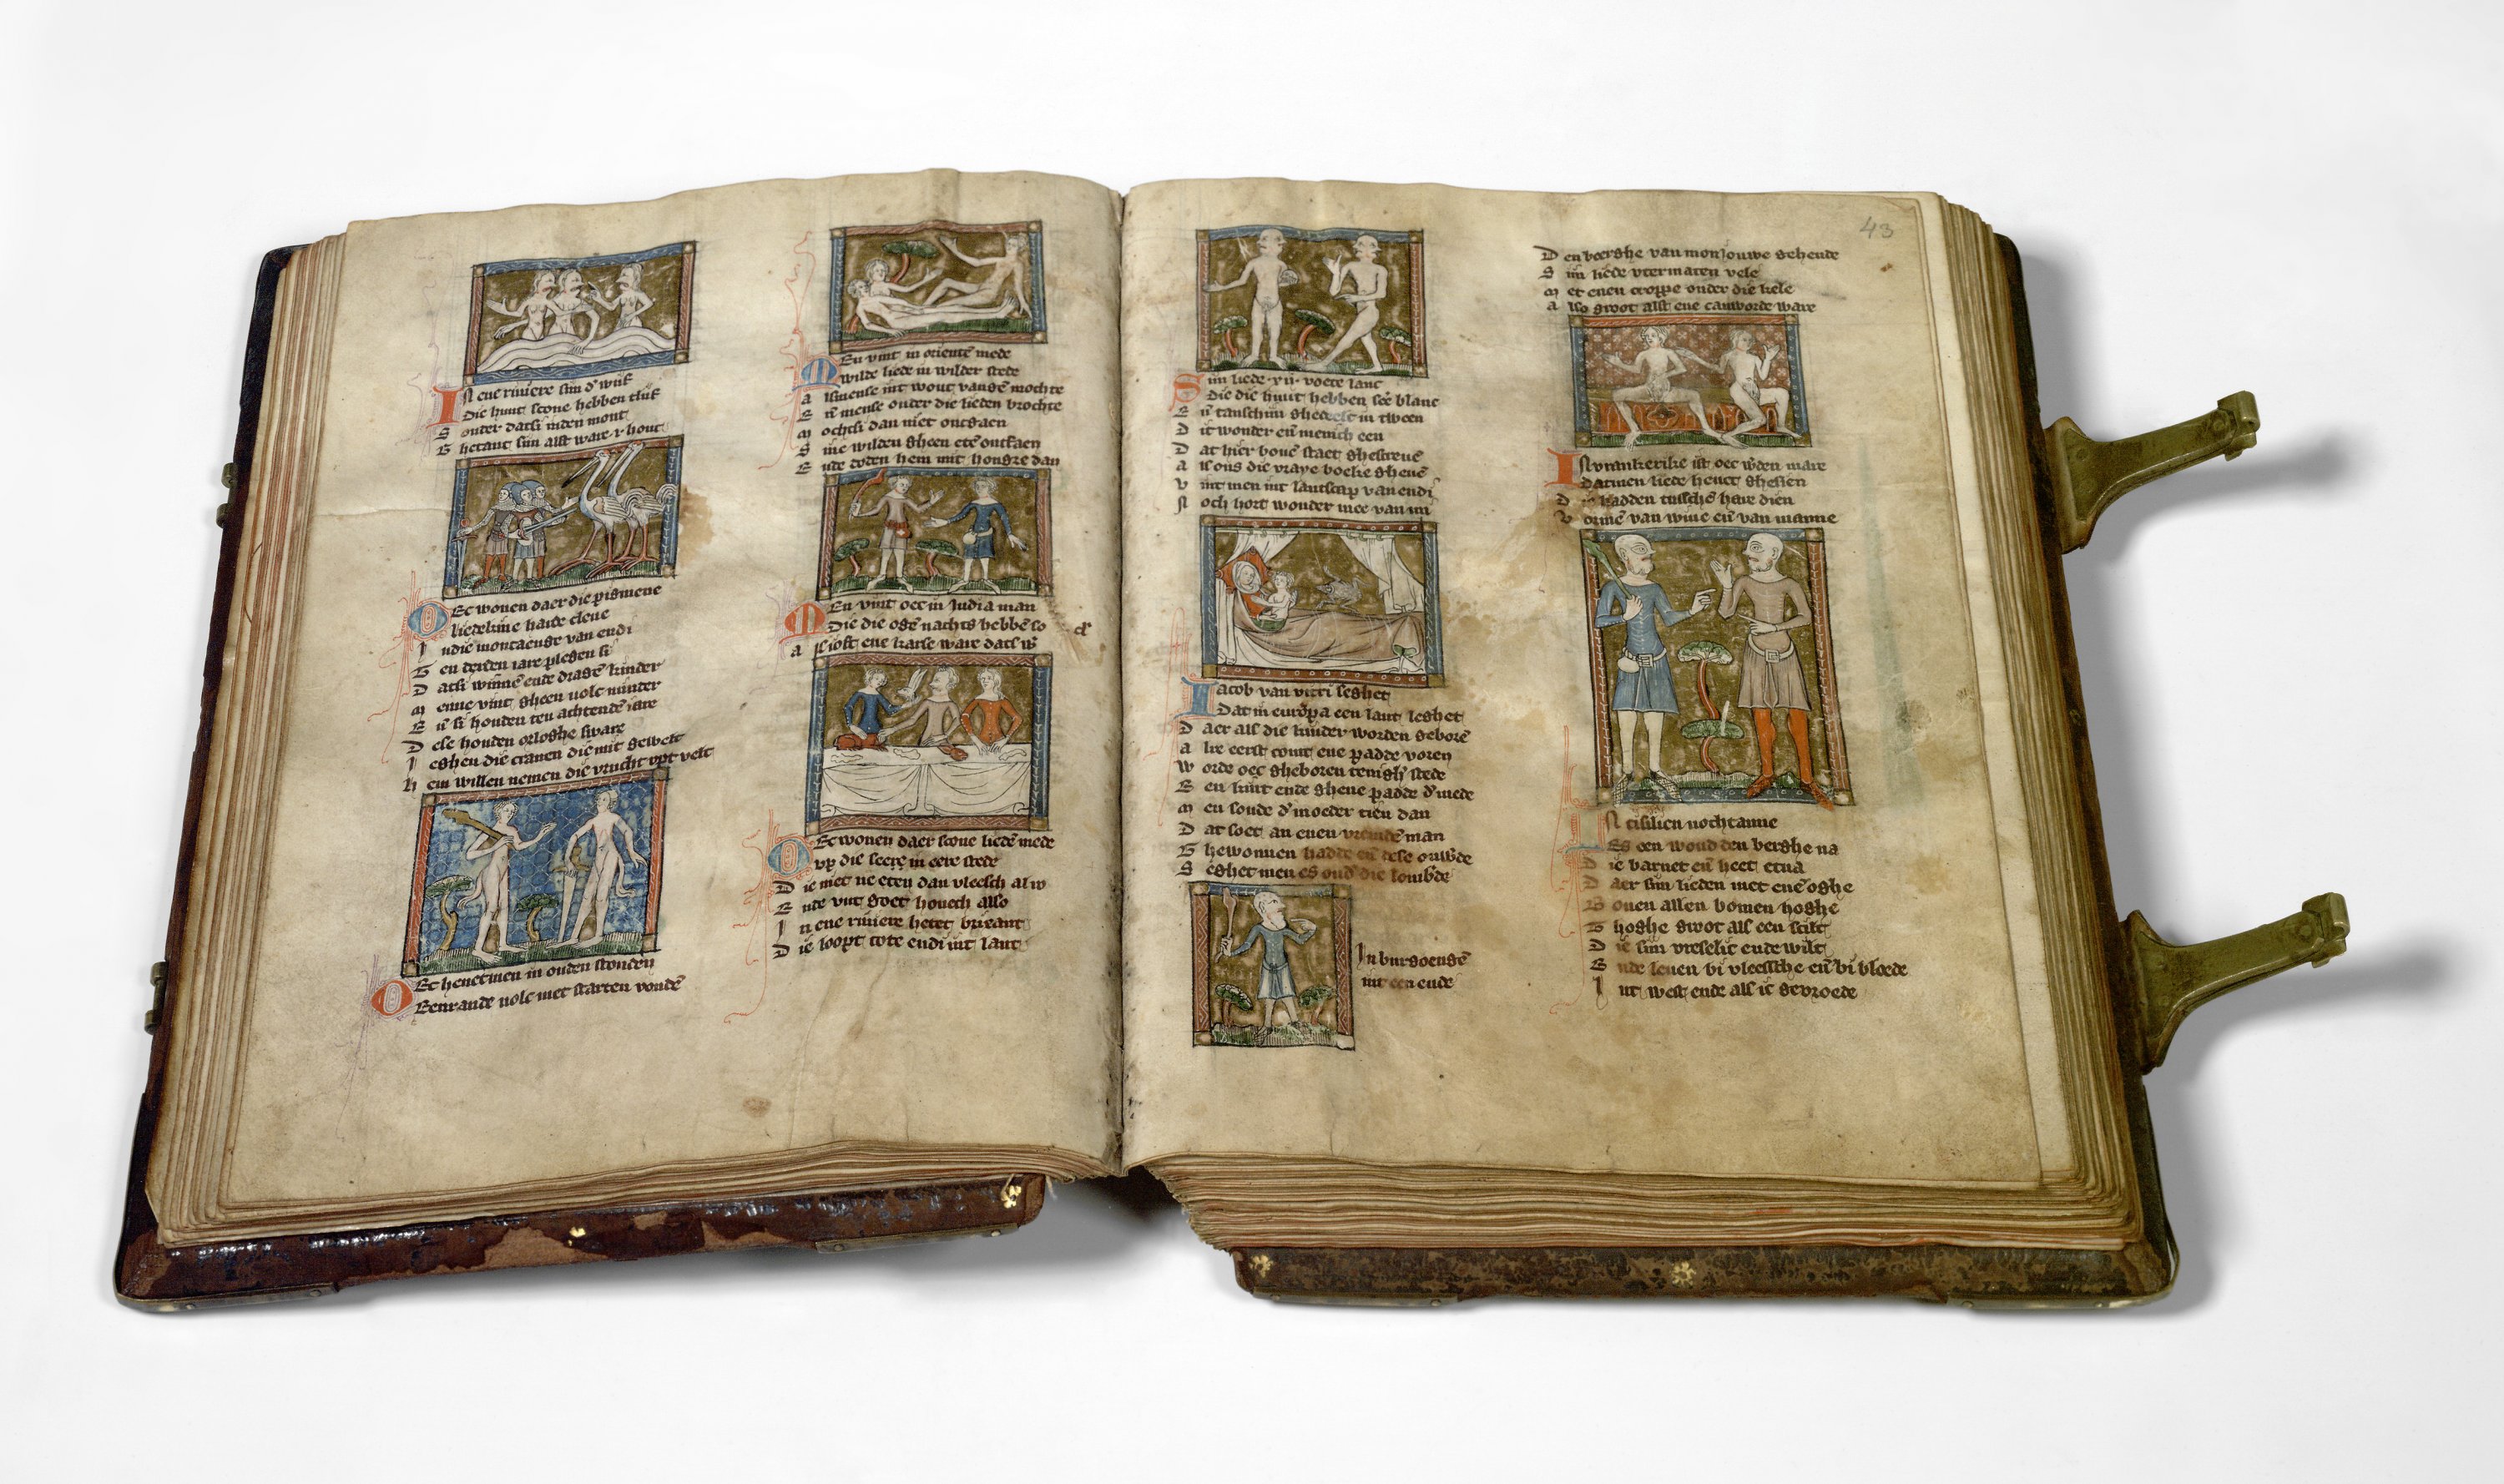 In ene riviere sijn d' wijf
Die hunt scone hebben tlijf
Sonder datsi inden mont
Ghetant sijn alst ware .i. hont
Oec wonen daer die pigmene
liedekine harde clene
Indie montaenge van endi
Ten derden iare plegen si
Datsi winnē ende dragē kinder
Menne vint gheen volc minder
Eñ si houden ten achtende iare
Dese houden orloghe sware
Ieghen die cranen die mit gewelt
Hem willen nemen die vrucht vpt velt
Oec hevetmen in ouden stonden
Eenrande volc met starten vondē
Men vint in oriente mede
wilde liede in wilder stede
Alsmense int wout vangē mochte
Eñ mense onder die lieden brochte
Mochtsi dan niet ontgaen
Sine wilden gheen etē ontfaen
Ende doden hem mit hongre dan
Men vint oec in India man
Die die ogē nachts hebbē so cl'
Als ioft ene karse ware dats w'
Oec wonen daer scone liedē mede
vp die seere in eere stede
Die niet ne eten dan vleesch al w
Ende vut goet honech also
In ene riviere hetet brixant
Die loopt tote endi int lant
Sijn liede .xii. voete lanc
die die huut hebben seē blanc
Eñ tanschijn ghedeelt in tween
Dit wonder eñ menich een
Dat hier bovē staet ghescreuē
Als ons die vraye boeke gheuē
Vint men int lantscap van endi
Noch hort wonder mee van mi
Iacob van vitri seghet
Dat in europa een lant leghet
Daer als die kinder worden geborē
Alre eerst comt ene padde voren
Worde oec gheboren tenigh' stede
Een kint ende ghene padde d'mede
Men soude d'moeder tien dan
Dat soet an enen vremdē man
Ghewonnen hadde eñ dese ouw̄de
Seghet men es oud die lomb'de
In burgoengē
int een ende
Den berghe van moniouwe gehende
Sijn liede vtermaten vele
Met enen croppe onder die kele
Also groot alst ene cauworde ware
In vrankerike ist oec w'den mare
datmen liede hevet ghesien
Die hadden tusschē hare dien
Vormē van wiue eñ van manne
In cisilien nochtanne
Es een woud den berghe na
Die barnet eñ heet etna
Daer sijn lieden met enē oghe
Bouen allen bomen hoghe
Thoghe groot als een scilt
Die sijn vreselic ende wilt
Ende leuen bi vleessche eñ bi bloede
Int west ende als ic gevroede
43